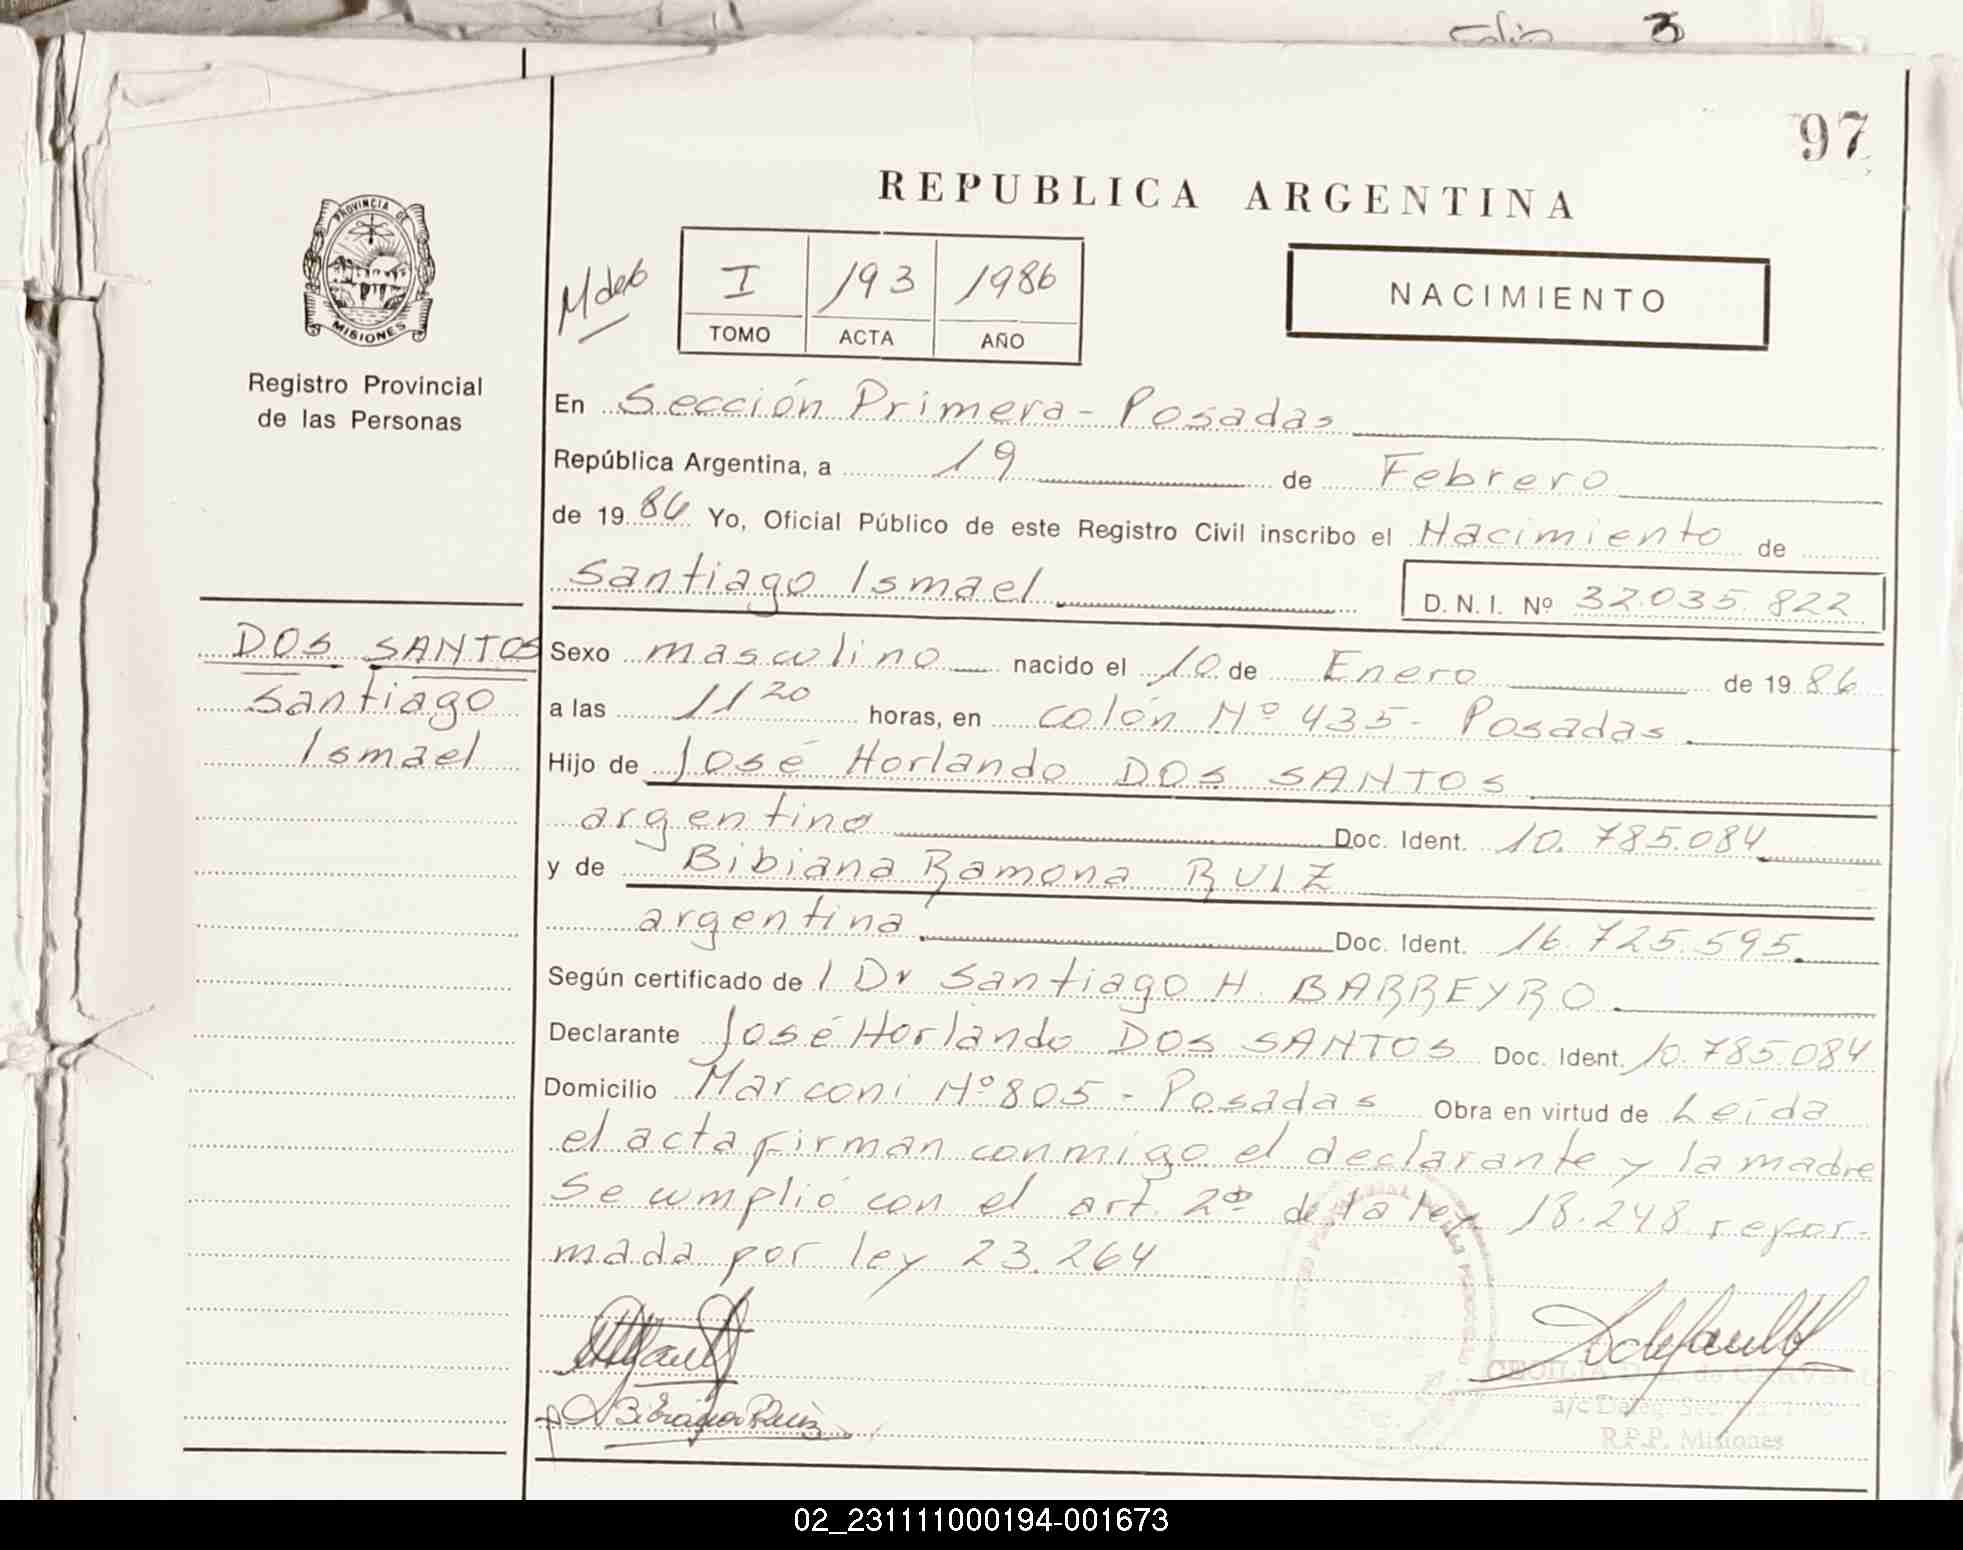 Folio 3
97
PROVINCIA DE
MISIONES
Registro Provincial
de las Personas
REPUBLICA ARGENTINA
I 193 1986
TOMO ACTA AÑO
NACIMIENTO
En Sección Primera - Posadas
República Argentina, a 19 de Febrero
de 1986 Yo, Oficial Público de este Registro Civil inscribo el Nacimiento de
Santiago Ismael D.N.I. Nº 32.035.822
DOS SANTOS
Santiago
Ismael
Sexo masculino nacido el 10 de Enero de 1986
a las 11 20 horas, en colón Nº 435 - Posadas
Hijo de José Horlando DOS SANTOS
argentino Doc. Ident. 10.785.084
y de Bibiana Ramona RUIZ
argentina Doc. Ident. 16.725.595.
Según certificado de l Dr Santiago H. BARREYRO
Declarante José Horlando DOS SANTOS Doc. Ident. 10.785.084
Domicilio Marconi Nº 805 - Posadas Obra en virtud de Leída
el acta firman conmigo el declarante y la madre
Se cumplió con el art. 2º de la ley 18.248 refor-
mada por ley 23.264
Bibiana Ruiz
CECILIA D. de
a/c Deleg. Sec.
R.P.P. Misiones
02_231111000194-001673